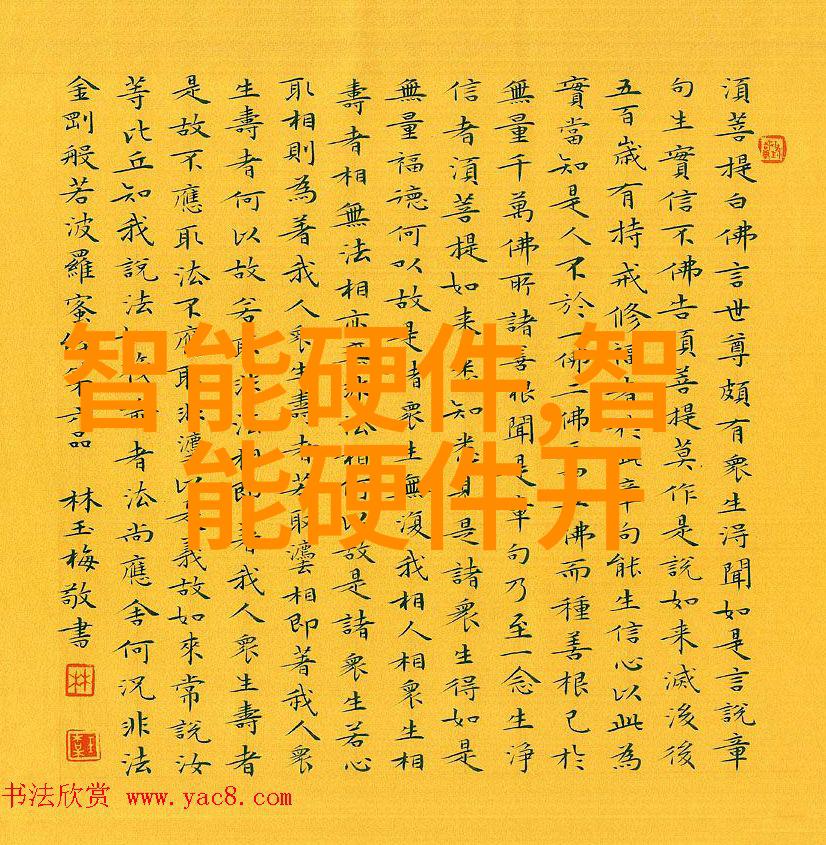 須菩提白佛言世尊頗有衆生得聞如是言說章
句生實信不佛告須菩提莫作是說如来滅後後
五百歲有持戒修者於此章句能生信心以此為
實當知是人不於一佛二佛佛而種善根已於
無量千萬佛所諸善根聞是章句乃至一念生淨
信者須菩提如来悉知悉見是諸衆生得如是
無量福德何以故是諸衆生無復我相人相衆生相
壽者相無法相亦無非法相何以故是諸衆生若心
取相則為著我人衆生壽者若取灋相即著我人衆
生壽者何以故若取非法相即著我人衆生壽者
是故不應取法不應取非灋以是義故如來常說汝
等比丘知我說法者法尚應舍何況非法
金剛般若波羅蜜六品 林玉梅敬書
林
智能硬件,智
能硬件开
书法欣赏 www.yac8.com